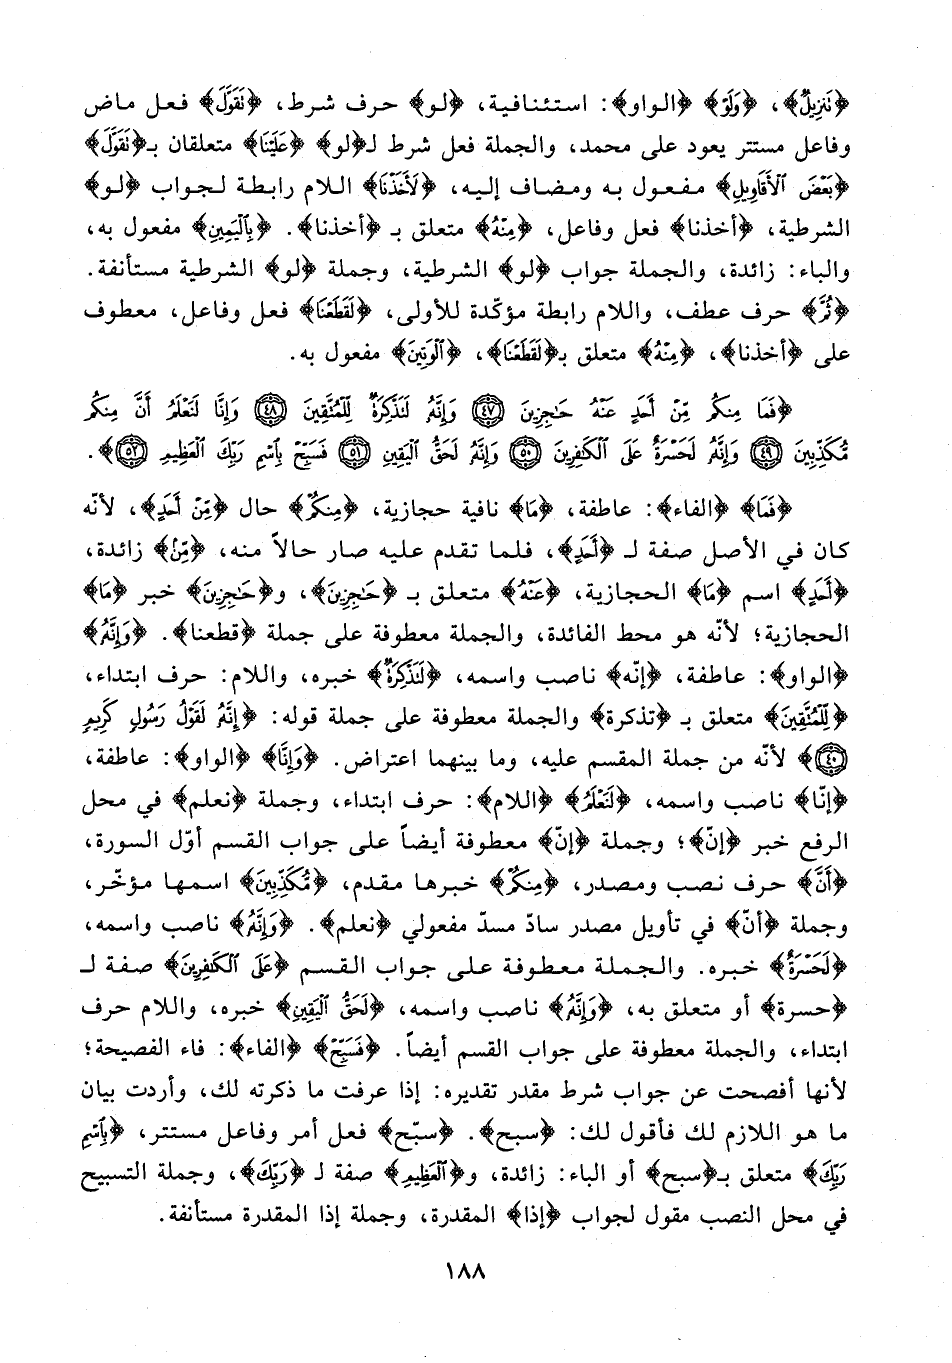 ﴿نَنزِيلٌ﴾، ﴿وَلَوْ﴾ ﴿الواو﴾: استئنافية، ﴿لو﴾ حرف شرط، ﴿نَقَوَّلَ﴾ فعل ماض
وفاعل مستتر يعود على محمد، والجملة فعل شرط لـ﴿لو﴾ ﴿عَلَيْنَا﴾ متعلقان بـ﴿نَقَوَّلَ﴾
﴿بَعْضَ ٱلْأَقَاوِيلِ﴾ مفعول به ومضاف إليه، ﴿لَأَخَذْنَا﴾ اللام رابطة لجواب ﴿لو﴾
الشرطية، ﴿أخذنا﴾ فعل وفاعل، ﴿مِنْهُ﴾ متعلق بـ ﴿أخذنا﴾. ﴿بِٱلْيَمِينِ﴾ مفعول به،
والباء: زائدة، والجملة جواب ﴿لو﴾ الشرطية، وجملة ﴿لو﴾ الشرطية مستأنفة.
﴿ثُمَّ﴾ حرف عطف، واللام رابطة مؤكّدة للأولى، ﴿لَقَطَعْنَا﴾ فعل وفاعل، معطوف
على ﴿أخذنا﴾، ﴿مِنْهُ﴾ متعلق بـ﴿لَقَطَعْنَا﴾، ﴿ٱلْوَتِينَ﴾ مفعول به.
﴿فَمَا مِنكُم مِّنْ أَحَدٍ عَنْهُ حَٰجِزِينَ ٤٧ وَإِنَّهُۥ لَتَذْكِرَةٌ لِّلْمُتَّقِينَ ٤٨ وَإِنَّا لَنَعْلَمُ أَنَّ مِنكُم
مُّكَذِّبِينَ ٤٩ وَإِنَّهُۥ لَحَسْرَةٌ عَلَى ٱلْكَٰفِرِينَ ٥٠ وَإِنَّهُۥ لَحَقُّ ٱلْيَقِينِ ٥١ فَسَبِّحْ بِٱسْمِ رَبِّكَ ٱلْعَظِيمِ ٥٢﴾.
﴿فَمَا﴾ ﴿الفاء﴾: عاطفة، ﴿مَا﴾ نافية حجازية، ﴿مِنكُم﴾ حال ﴿مِّنْ أَحَدٍ﴾، لأنّه
كان في الأصل صفة لـ ﴿أَحَدٍ﴾، فلما تقدم عليه صار حالاً منه، ﴿مِّنْ﴾ زائدة،
﴿أَحَدٍ﴾ اسم ﴿مَا﴾ الحجازية، ﴿عَنْهُ﴾ متعلق بـ ﴿حَٰجِزِينَ﴾، و﴿حَٰجِزِينَ﴾ خبر ﴿مَا﴾
الحجازية؛ لأنّه هو محط الفائدة، والجملة معطوفة على جملة ﴿قطعنا﴾. ﴿وَإِنَّهُۥ﴾
﴿الواو﴾: عاطفة، ﴿إنّه﴾ ناصب واسمه، ﴿لَتَذْكِرَةٌ﴾ خبره، واللام: حرف ابتداء،
﴿لِّلْمُتَّقِينَ﴾ متعلق بـ ﴿تذكرة﴾ والجملة معطوفة على جملة قوله: ﴿إِنَّهُۥ لَقَوْلُ رَسُولٍ كَرِيمٍ
٤٠﴾ لأنّه من جملة المقسم عليه، وما بينهما اعتراض. ﴿وَإِنَّا﴾ ﴿الواو﴾: عاطفة،
﴿إنّا﴾ ناصب واسمه، ﴿لَنَعْلَمُ﴾ ﴿اللام﴾: حرف ابتداء، وجملة ﴿نعلم﴾ في محل
الرفع خبر ﴿إنّ﴾؛ وجملة ﴿إنّ﴾ معطوفة أيضاً على جواب القسم أوّل السورة،
﴿أَنَّ﴾ حرف نصب ومصدر، ﴿مِنكُم﴾ خبرها مقدم، ﴿مُّكَذِّبِينَ﴾ اسمها مؤخّر،
وجملة ﴿أنّ﴾ في تأويل مصدر سادّ مسدّ مفعولي ﴿نعلم﴾. ﴿وَإِنَّهُۥ﴾ ناصب واسمه،
﴿لَحَسْرَةٌ﴾ خبره. والجملة معطوفة على جواب القسم ﴿عَلَى ٱلْكَٰفِرِينَ﴾ صفة لـ
﴿حسرة﴾ أو متعلق به، ﴿وَإِنَّهُۥ﴾ ناصب واسمه، ﴿لَحَقُّ ٱلْيَقِينِ﴾ خبره، واللام حرف
ابتداء، والجملة معطوفة على جواب القسم أيضاً. ﴿فَسَبِّحْ﴾ ﴿الفاء﴾: فاء الفصيحة؛
لأنها أفصحت عن جواب شرط مقدر تقديره: إذا عرفت ما ذكرته لك، وأردت بيان
ما هو اللازم لك فأقول لك: ﴿سبح﴾. ﴿سبّح﴾ فعل أمر وفاعل مستتر، ﴿بِٱسْمِ
رَبِّكَ﴾ متعلق بـ﴿سبح﴾ أو الباء: زائدة، و﴿ٱلْعَظِيمِ﴾ صفة لـ ﴿رَبِّكَ﴾، وجملة التسبيح
في محل النصب مقول لجواب ﴿إذا﴾ المقدرة، وجملة إذا المقدرة مستأنفة.
١٨٨